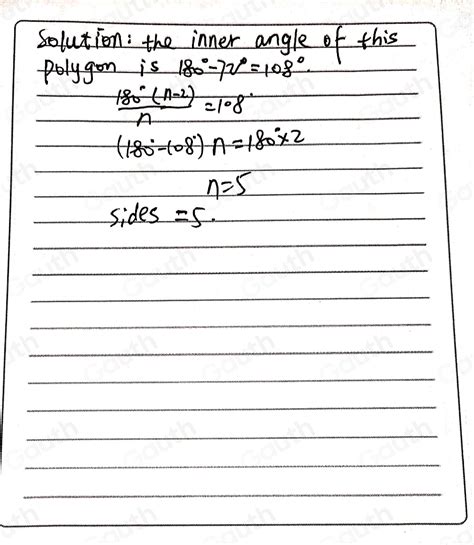 Solution: the inner angle of this
polygon is 180°-72°=108°.
180°(n-2)/n =108°
(180°-108°)n=180°×2
n=5
sides =5.
Gauth